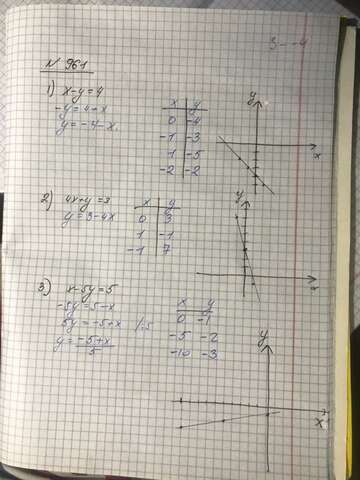 3 - -4
N 961
1) x-y=4
-y=4+x
y=-4-x
x y
0 -4
-1 -3
1 -5
-2 -2
y
x
2) 4x+y=3
y=3-4x
x y
0 3
1 -1
-1 7
y
x
3) x-5y=5
-5y=5-x
5y=-5+x /:5
y=-5+x/5
x y
0 -1
-5 -2
-10 -3
y
x